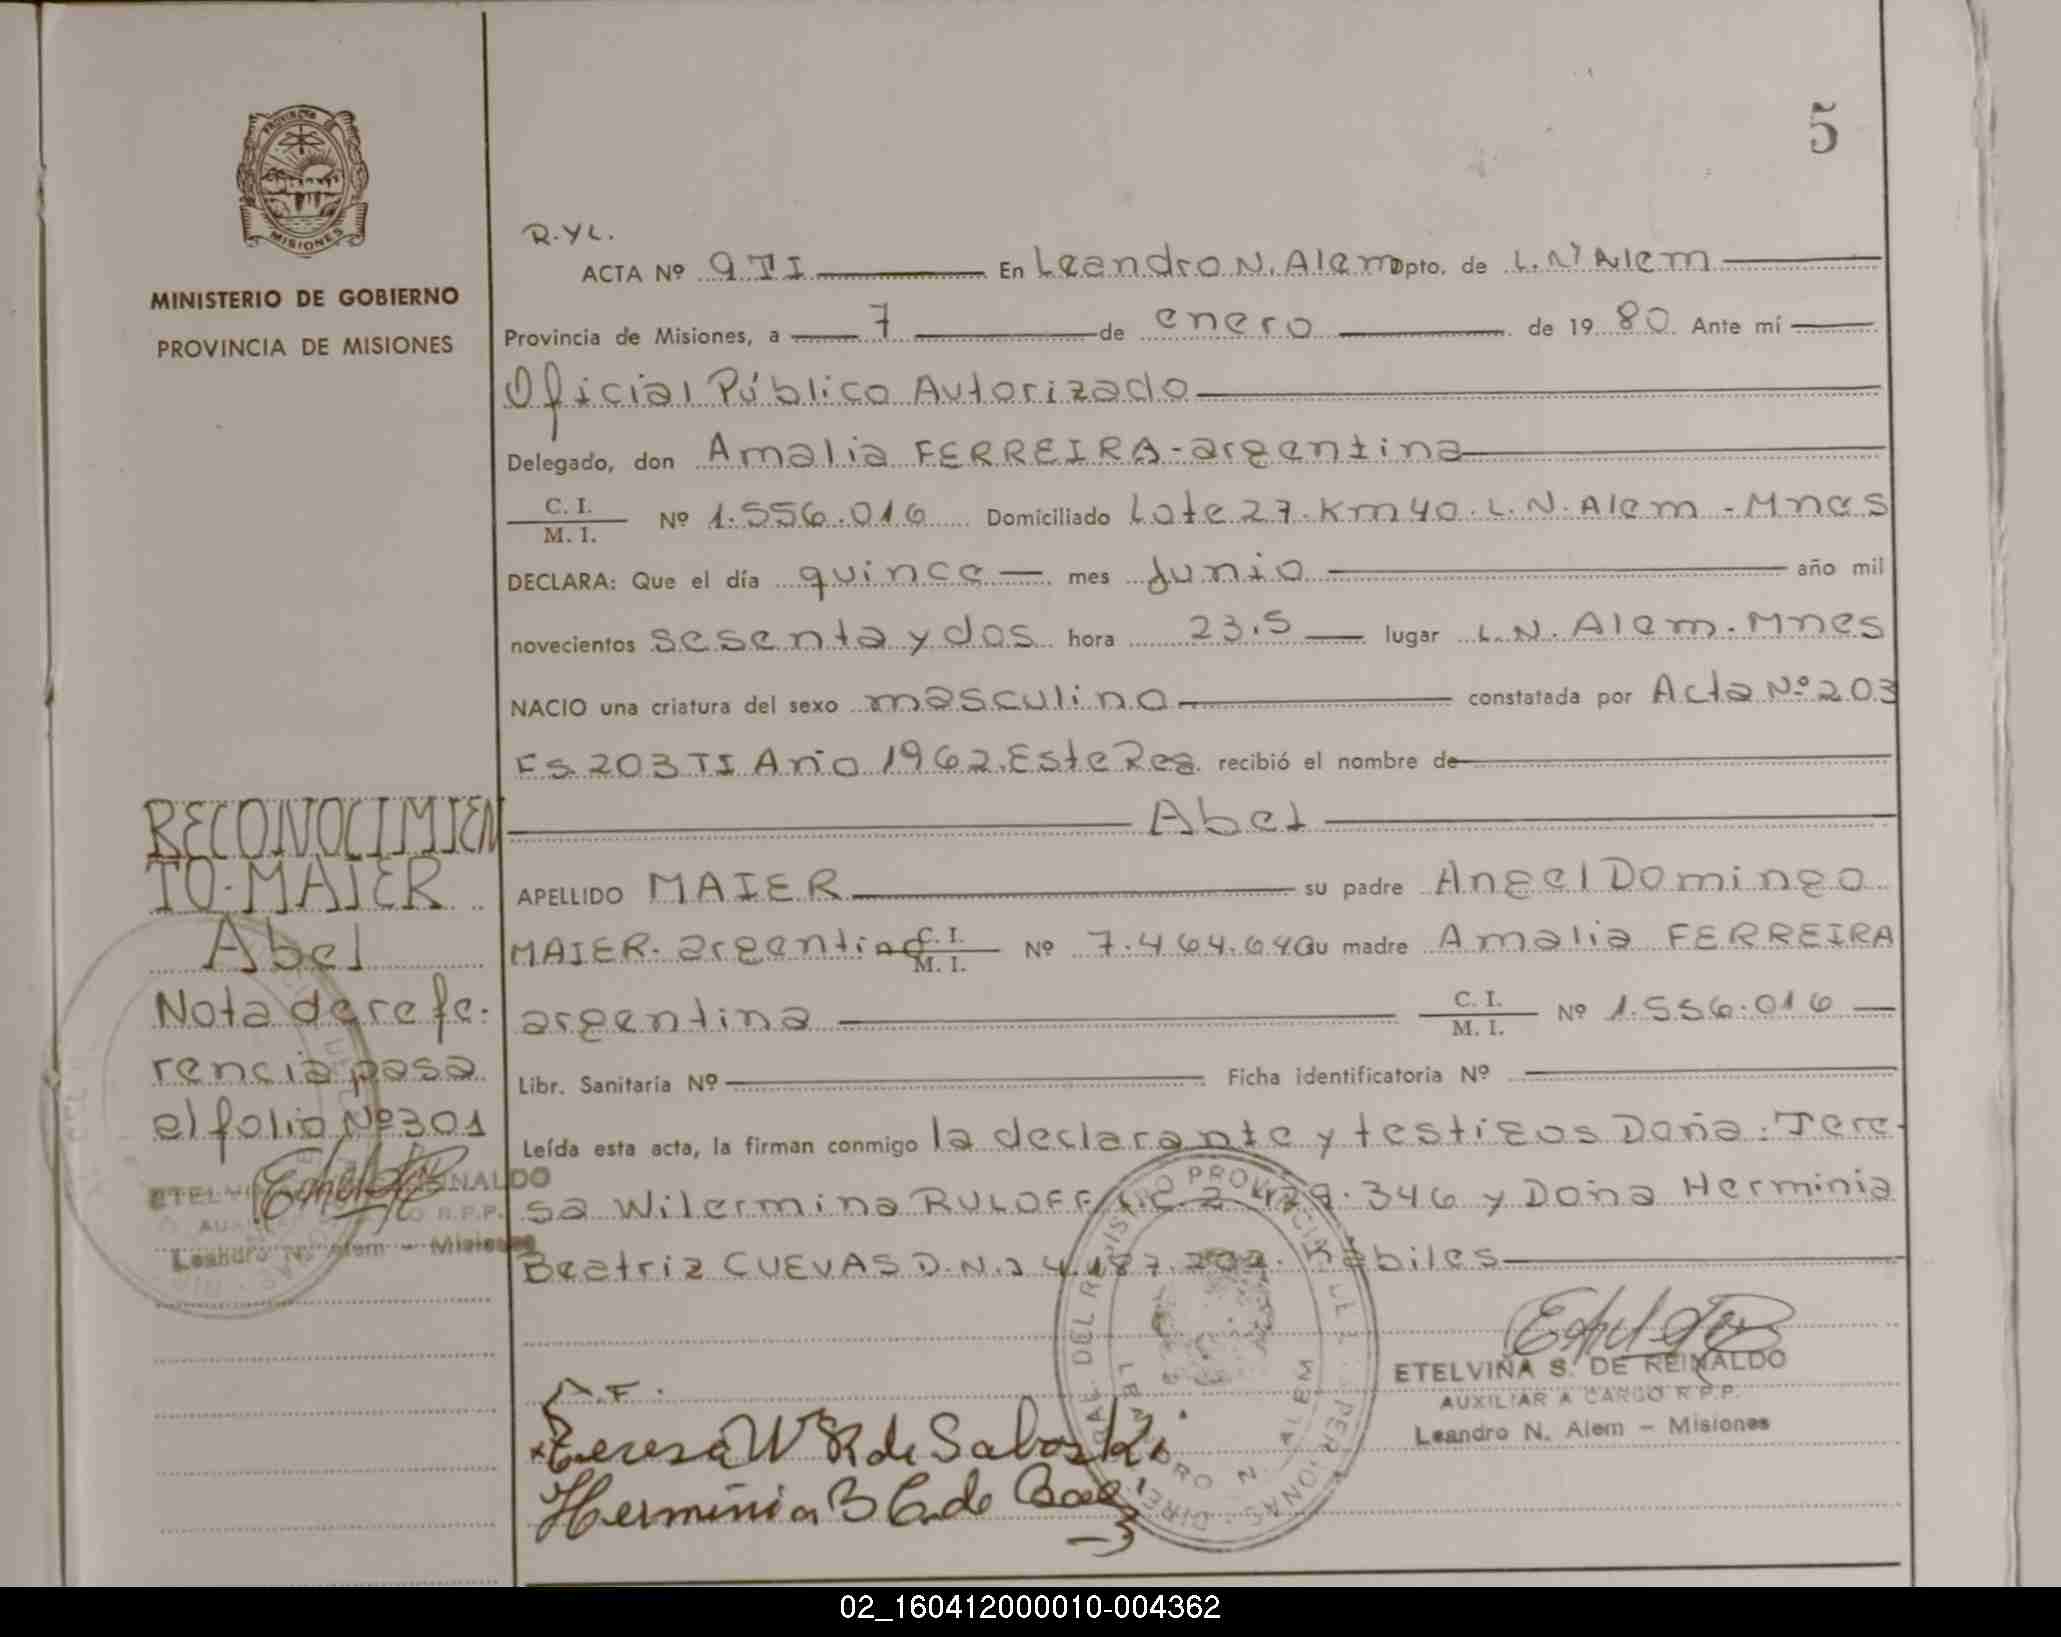 5
PROVINCIA DE
MISIONES
MINISTERIO DE GOBIERNO
PROVINCIA DE MISIONES
R.YL.
ACTA Nº 9 TI En Leandro N. Alem Dpto. de L.N. Alem
Provincia de Misiones, a 7 de enero de 1980 Ante mí
Oficial Público Autorizado
Delegado, don Amalia FERREIRA-argentina
C. I.
M. I. Nº 1.556.016 Domiciliado Lote 27. Km 40. L.N. Alem - Mnes
DECLARA: Que el día quince mes Junio año mil
novecientos sesenta y dos hora 23.5 lugar L.N. Alem. Mnes
NACIO una criatura del sexo masculino constatada por Acta Nº 203
Fs 203 TI Año 1962. Este Reg. recibió el nombre de
Abel
APELLIDO MAIER su padre Angel Domingo
MAIER. argentino C. I.
M. I. Nº 7.464.640 su madre Amalia FERREIRA
argentina C. I.
M. I. Nº 1.556.016
Libr. Sanitaria Nº Ficha identificatoria Nº
Leída esta acta, la firman conmigo la declarante y testigos Doña: Tere-
sa Wilermina RULOFF L.C. 2 .346 y Doña Herminia
Beatriz CUEVAS D.N.I 4.187. hábiles
A.F.
Teresa W R de Saboski
Herminia B C. de Baez
ETELVINA S. DE REINALDO
AUXILIAR A CARGO R.P.P.
Leandro N. Alem - Misiones
RECONOCIMIEN
TO. MAIER
Abel
Nota de refe-
rencia pasa
el folio Nº 301
ETELVINA REINALDO
R.P.P.
Leandro N. Alem - Misiones
02_160412000010-004362